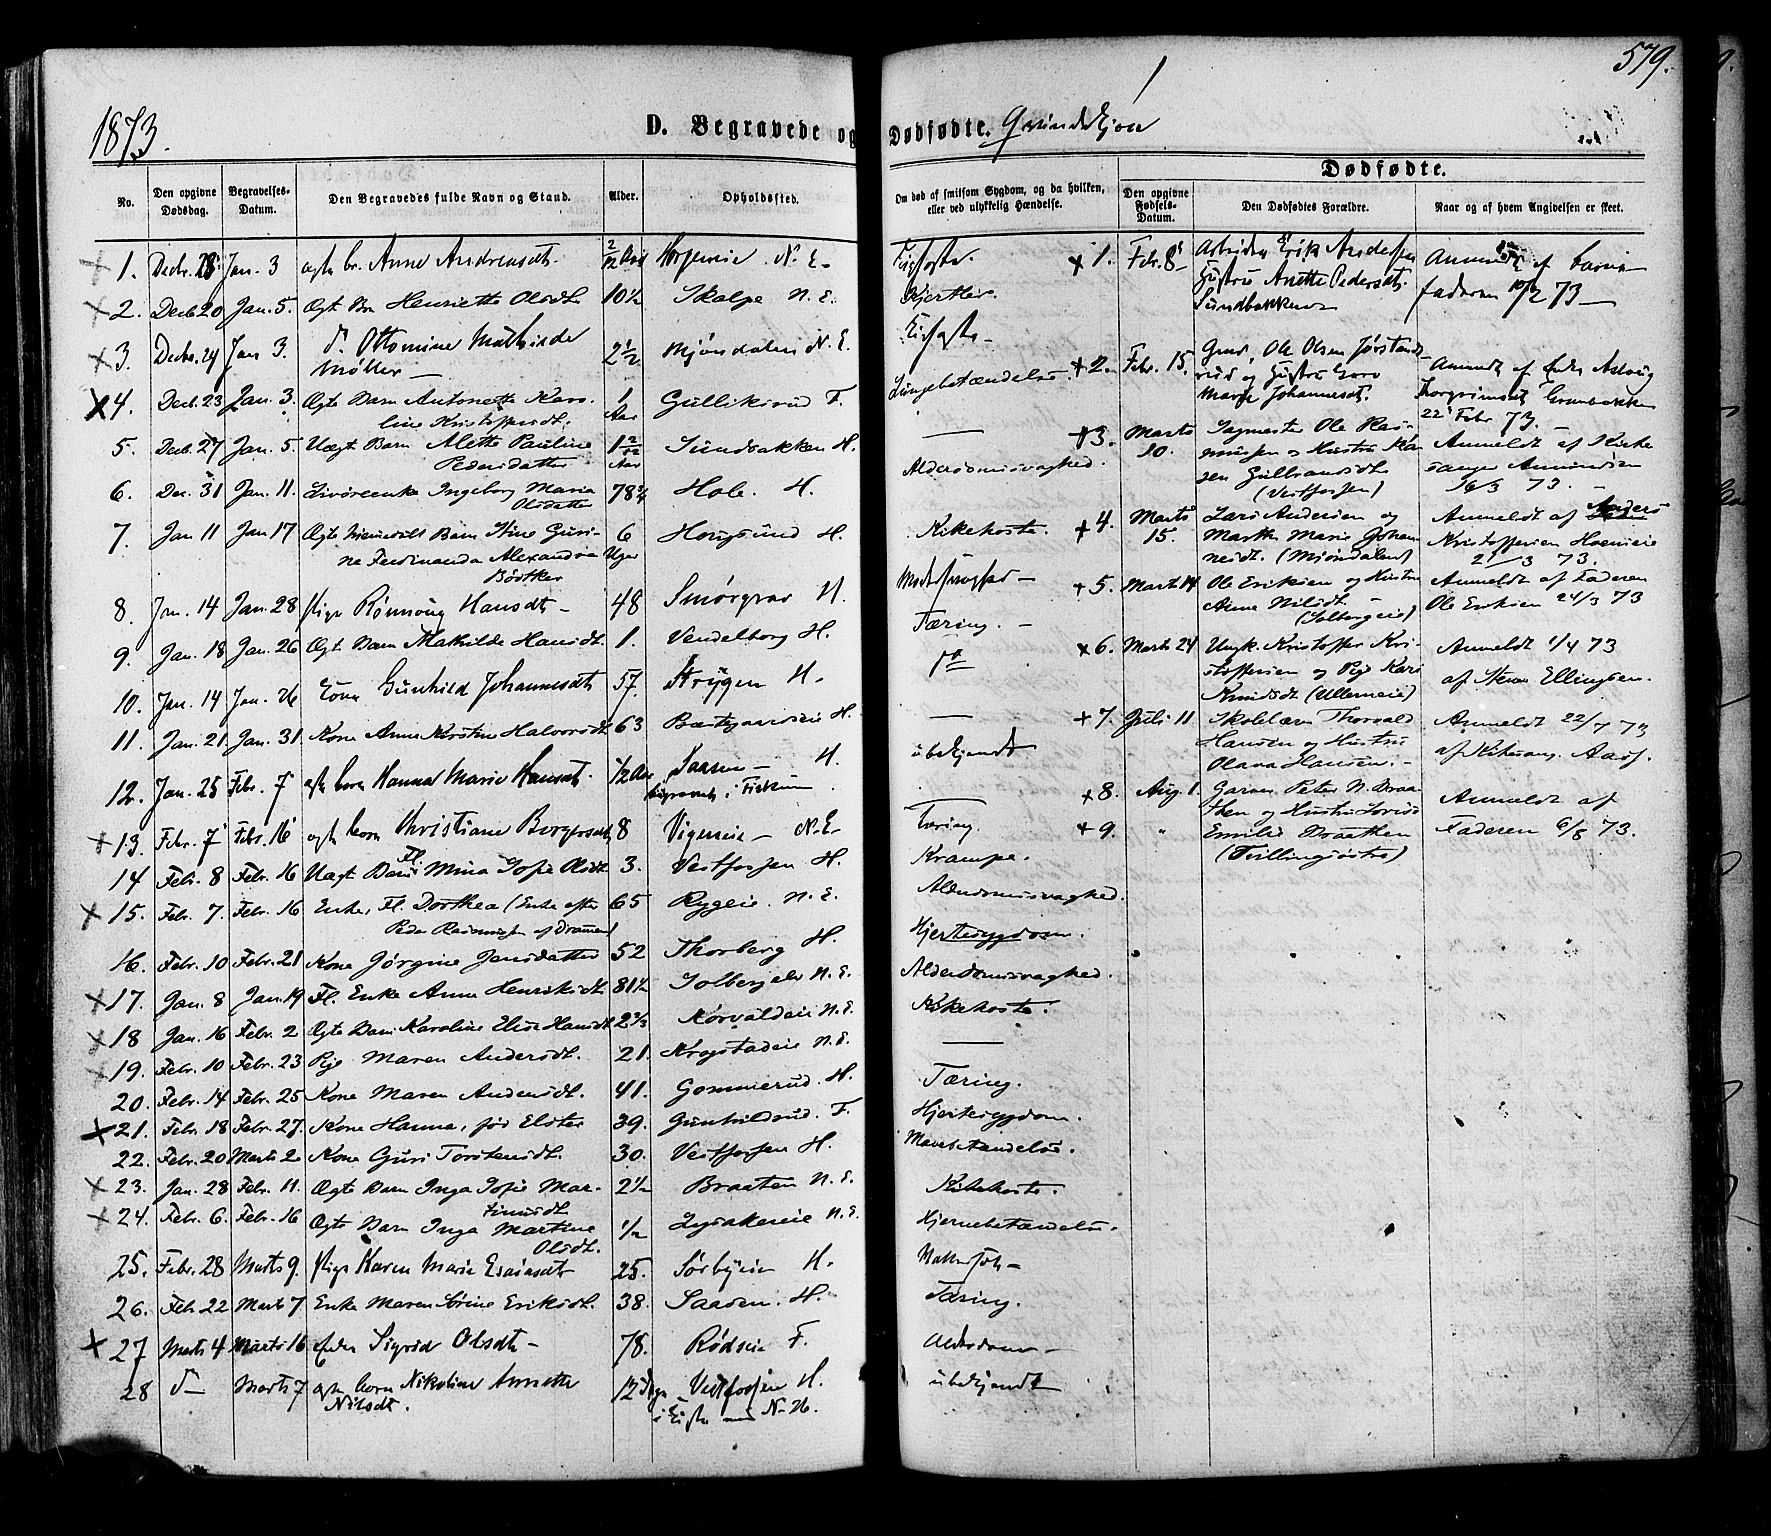 579.
1873.
D. Begravede og Dødfødte. Qvindekjøn
Dødfødte.
No.
Den opgivne Dødsdag.
Begravelses-Datum.
Den Begravedes fulde Navn og Stand.
Alder.
Opholdssted.
Om død af smitsom Sygdom, og da hvilken, eller ved ulykkelig Hændelse.
Den opgivne Fødsels-Datum.
Den Dødfødtes Forældre.
Naar og af hvem Angivelsen er skeet.
1. Decbr. Jan. 3 Anne Andreasdt. 2/12 N. E.
2. Decb. 20 Jan. 5. Ægt Bn Henriette Olsdt. 10 1/2 Skalpe N. E.
3. Decbr. 24 Jan 3. Ottomine Mathilde Møller 2 1/2 Mjøndalen N. E.
4. Decb. 23 Jan. 3. Ægte Barn Antonette Karoline Kristoffersdt. 1 Aar Gulliksrud F. Lungebetændelse.
5. Decb. 27 Jan. 5. Uægt Barn Alette Pauline Pedersdatter 1 2/12 Aar Sundbakken H. —
6. Dec. 31 Jan. 11. Ingeborg Maria Olsdatter 78 3/4 Hole. H. Alderdomssvaghed.
7. Jan 11 Jan 17 Ægte Barn Gurine Ferdinanda Alexandra Bødtker 6 Uger Hougsund H. Kikehoste.
8. Jan. 14 Jan. 28 Pige Rønnaug Hansdt — 48 Smørgrav H.
9. Jan. 18 Jan. 26 Ægt Barn Mathilde Hansdt. 1. Vendelborg H. Tæring. —
10. Jan. 14 Jan. 26 Gunhild Johannesdt 57. Strygen H. do
11. Jan. 21 Jan. 31 Kone Anne Kirstine Halvorsdt 63 H. —
12. Jan. 25 Febr. 7 ægte barn Hanna Marie Hansdt. 1/2 Aar Saasen — H. begravet i Fiskum ubekjendt
13. Febr. 7 Febr. 16 ægt barn Christiane Borgersdt 8 Vigeneie — N. E.
14 Febr. 8 Febr. 16 Uægt Barn Mina Sofie Olsdt 3. Vestfossen H. Tæring.
15. Febr. 7. Febr. 16 Enke, Fl. Dorthea (Enke efter Peder Rasmussen af Drammen) 65 Rygeie. N. E. Krampe.
16. Febr. 10 Febr. 21 Kone Jørgine Jensdatter 52 Thorberg H. Hjertesygdom.
17. Jan. 8 Jan. 19 Fl. Enke Anne Henriksdt. 81 1/2 N. E. Alderdomssvaghed.
18 Jan. 16 Febr. 2 Ægte Barn Karoline Elise Hansdt 2 2/3 Korvaldeie N. E. Kikehoste.
19. Febr. 10 Febr. 23 Pige Maren Andersdt. 21. Krogstadeie N. E. —
20. Febr. 14 Febr. 25 Kone Maren Andersdt. 41. Gommerud. H. Tæring.
21. Febr. 18 Febr. 27. Kone Hanna, fød Elster 39. Gunhildrud. F. Hjertesygdom.
22. Febr. 20 Marts 2 Kone Guri Torstensdt. 30. Vestfossen H. Mavebetændelse.
23. Jan. 28 Febr. 11. Ægte Barn Inga Sofie Martinusdt 2 1/2 Braaten N. E. Kikehoste.
24. Febr. 6. Febr. 16 Ægte Barn Inga Martine Olsdt. 1/2 Lysakereie N. E. Hjernebetændelse.
25. Febr. 28 Marts 9. Pige Karen Marie Esaiasdt 25. Sørbyeie H.
26. Febr. 22 Marts 7 Enke Maren Sørine Eriksdt. 38. Saasen. H. Tæring.
27 Marts 4 Marts 16 Enke Sigrid Olsdt — 78. Rødseie F. Alderdom —
28 Marts 7 ægte barn Nikoline Annette Nilsdt. 12 Dage Vestfossen H. ubekjendt
1. Febr. 8 Arbeider Erik Andersen Hustru Anette Pedersdt. Sundbakken Anmeldt af barnefaderen 10/2 73 —
2. Febr. 15. Ole Olsen og Hustru Johannesdt. Anmeldt af 22 Febr 73.
3. Marts 10. Sagmester Ole Rasmusen og Hustru Karen Gulbrandsdt (Vestfossen) Anmeldt af Kirkesanger Amundsen 16/3 73. —
4. Marts 15. Lars Andersen og Marthe Marie Johannesdt. (Mjøndalen) Anmeldt af Anders Kristoffersen 21/3 73.
5. Marts 14 Ole Eriksen og Hustru Anne Nilsdt. (Solbergeie) Anmeldt af Faderen Ole Eriksen 24/3 73
6. Marts 24 Ungk. Kristoffer Kristoffersen og Pige Kari Knudsdt (Ullerneie) Anmeldt 1/4 73 af Ellingsen.
7. Juli 11 Skolelærer Thorvald Hansen og Hustru Olava Hansen. — Anmeldt 22/7 73 af Aars.
8. Aug. 1. Garver Peter N. Braathen og Hustru Emilie Braathen (Tvillingsøstre) Anmeldt af Faderen 6/8 73.
9. "